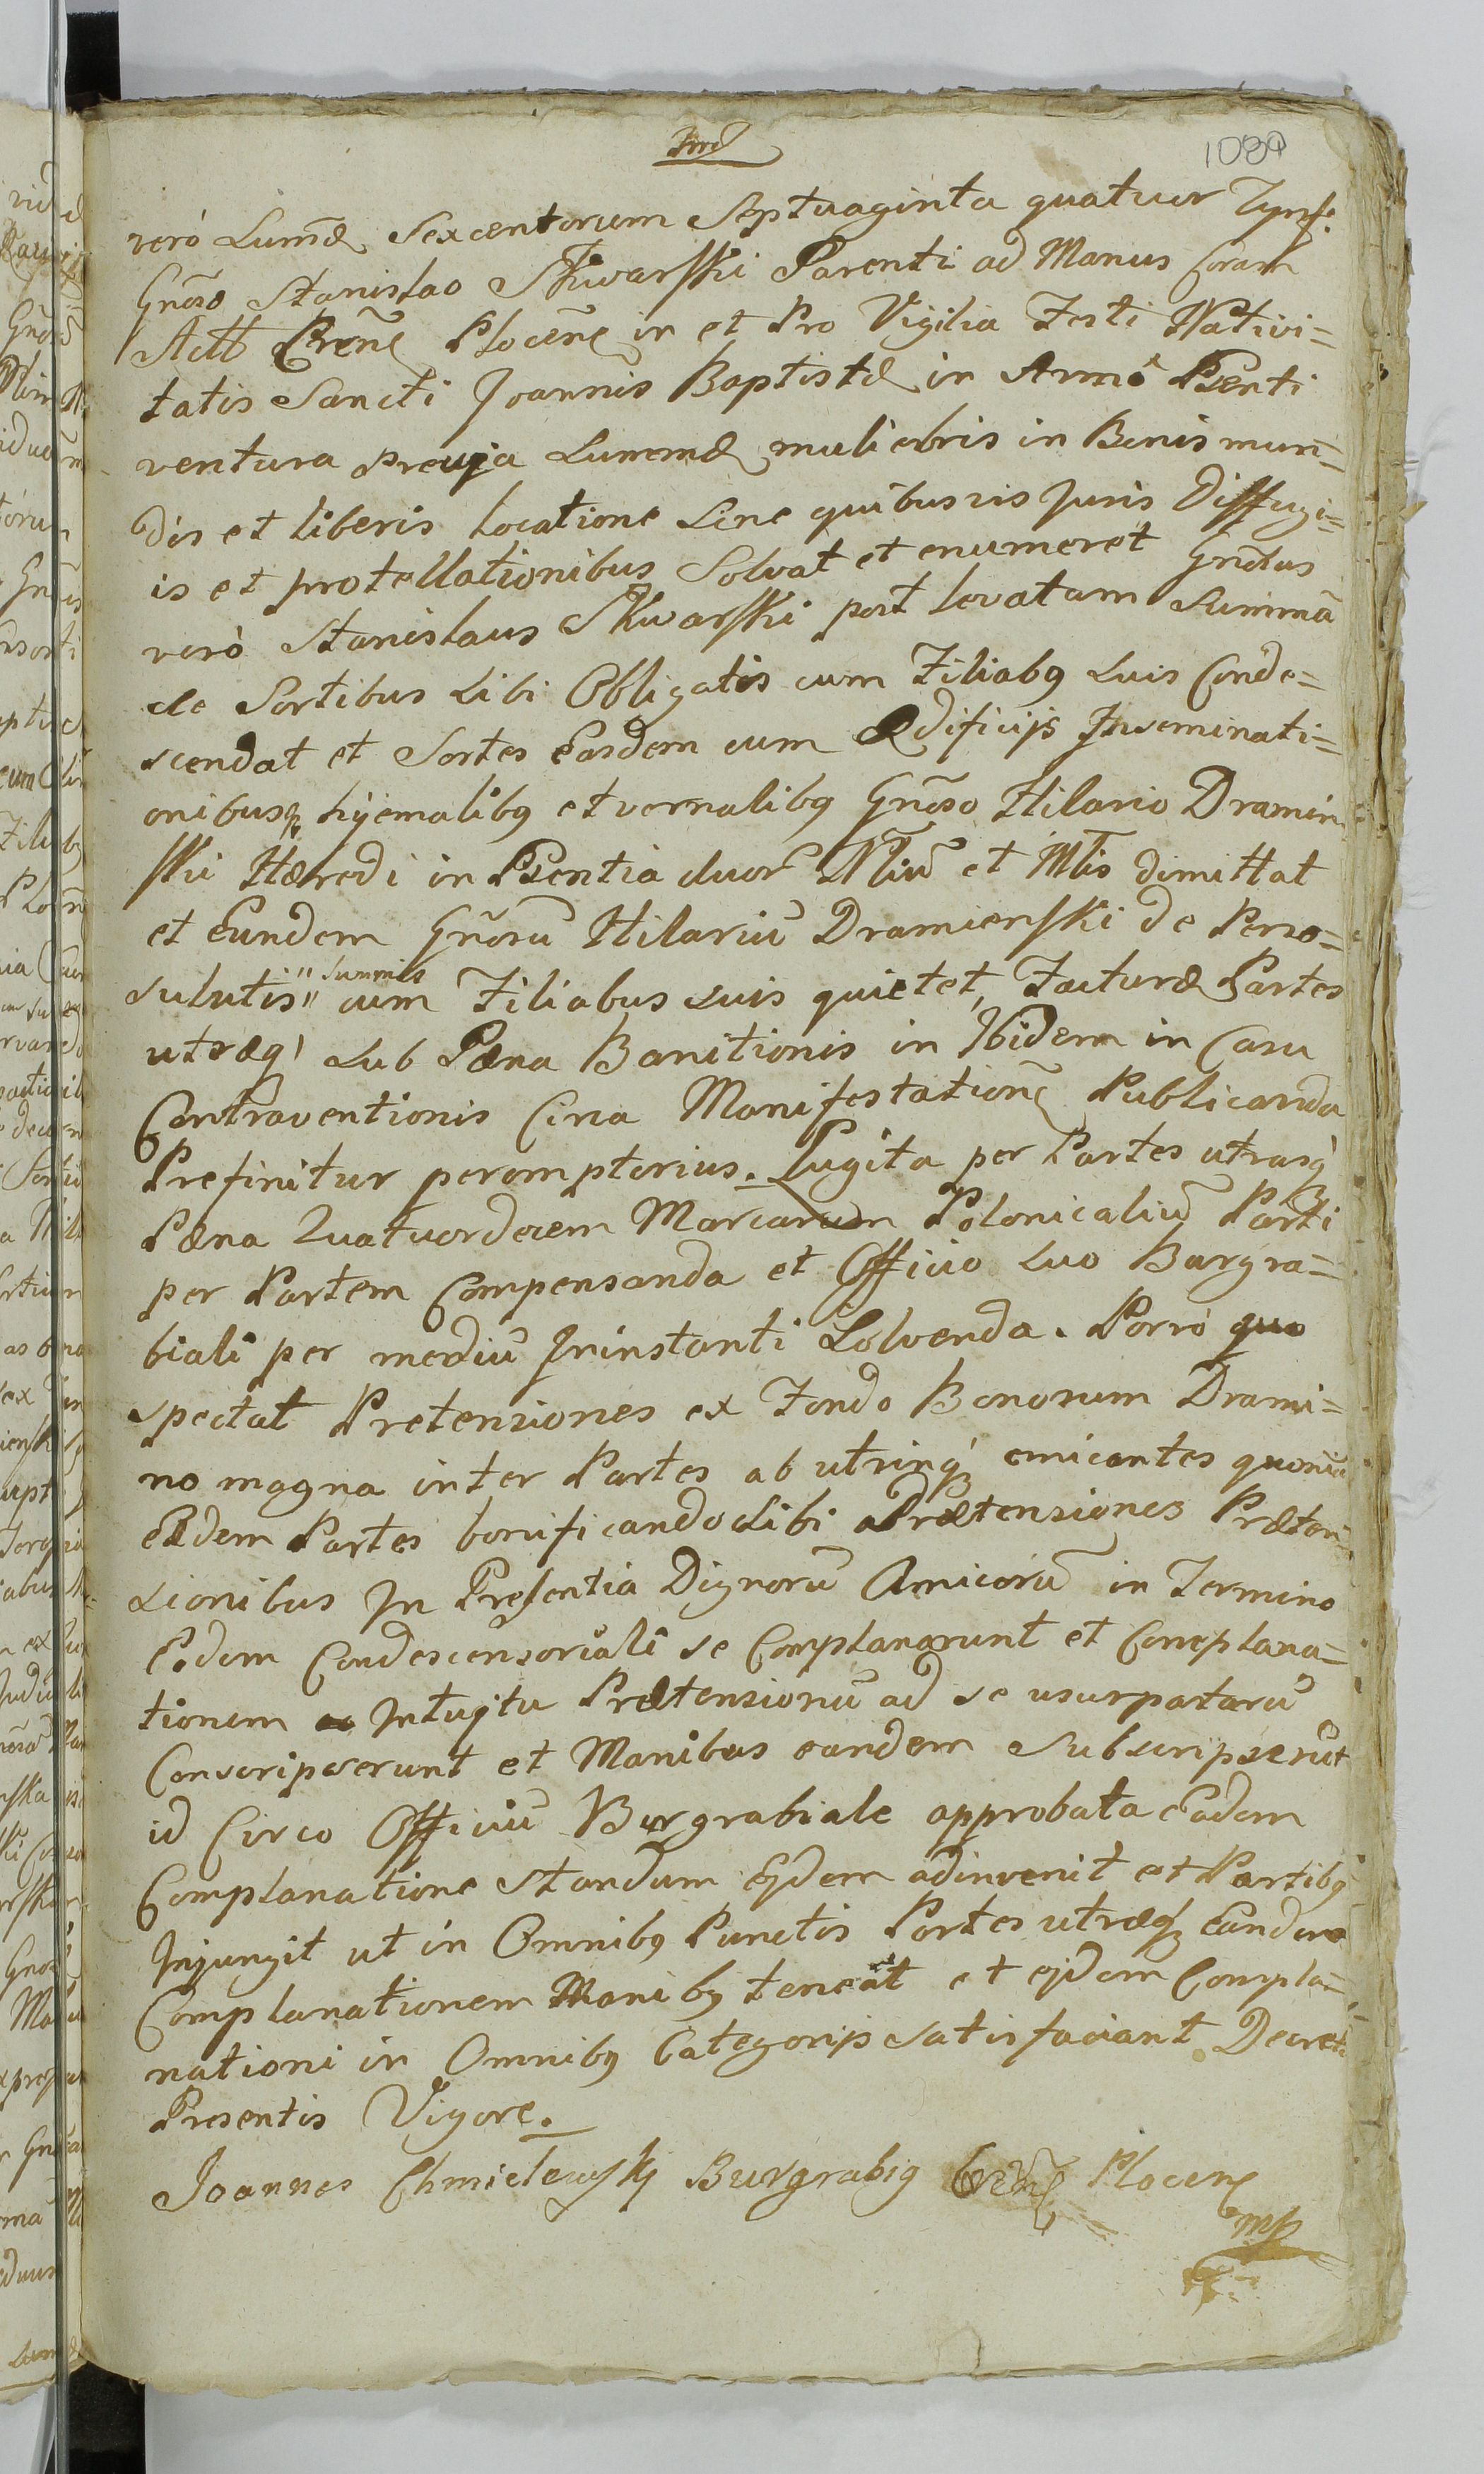 1039
verò Sum̃æ Sexcentorum Septuaginta quatuor Tynf:
Gnõso Stanislao Skwarski Parenti ad Manus Coram
Actt Crenẽ Plocenẽ in et Pro Vigilia Festi Nativi=
tatis Sancti Joannis Baptistæ in Anno Psenti
ventura prævja Summæ muliebris in Bonis mun=
dis et liberis locatione Sine quibusvis Juris Diffugi=
is et protellationibus Solvat et enumeret Gnõsus
verò Stanislaus Skwarski post levatam Summã
de Sortibus Sibi Obligatis cum Filiabq Suis Conde=
scendat et Sortes Easdem cum Ædificijs Inseminati=
onibusq hÿemalibq et vernalibq Gnõso Hilario Dramin
ski Hæredi in Psentia duor Nliũ et Mlis dimittat
et Eundem Gnõsũ Hilariũ Dramienski de Perso=
lutis summis cum Filiabus suis quietet, Facturæ Partes
utræq Sub Pæna Banitionis in Ibidem in Casu
Contraventionis Circa Manifestationẽ Publicanda
Prefinitur peremptorius. Lugita per Partes utrasq
Pæna Quatuordecem Marcarum Polonicaliũ Parti
per Partem Compensanda et Officio Suo Burgra=
biali per mediũ Ininstanti Solvenda. Porrò quo
spectat Pretensiones ex Fondo Bonorum Drami=
no magna inter Partes ab utrinq emicantes quoniã
eædem Partes bonificando Sibi Prætensiones Præten
sionibus In Presentia Dignorũ Amicorũ in Termino
Eodem Condescensoriali se Complanarunt et Complana=
tionem Intujtu Prætensionũ ad se usurpatarũ
Conscripserunt et Manibus eandem Subscripserũt
id Circo Officiũ Burgrabiale approbata Eadem
Complanatione Standum Ejdem adinvenit et Partibq
Injungit ut in Omnibq Punctis Partes utræq Eandem
Complanationem Manibq teneat et ejdem Compla=
nationi in Omnibq Categorijs satisfaciant Decreti
Presentis Vigore.
Joannes Chmielewskj Burgrabiq Plocenẽ
mp